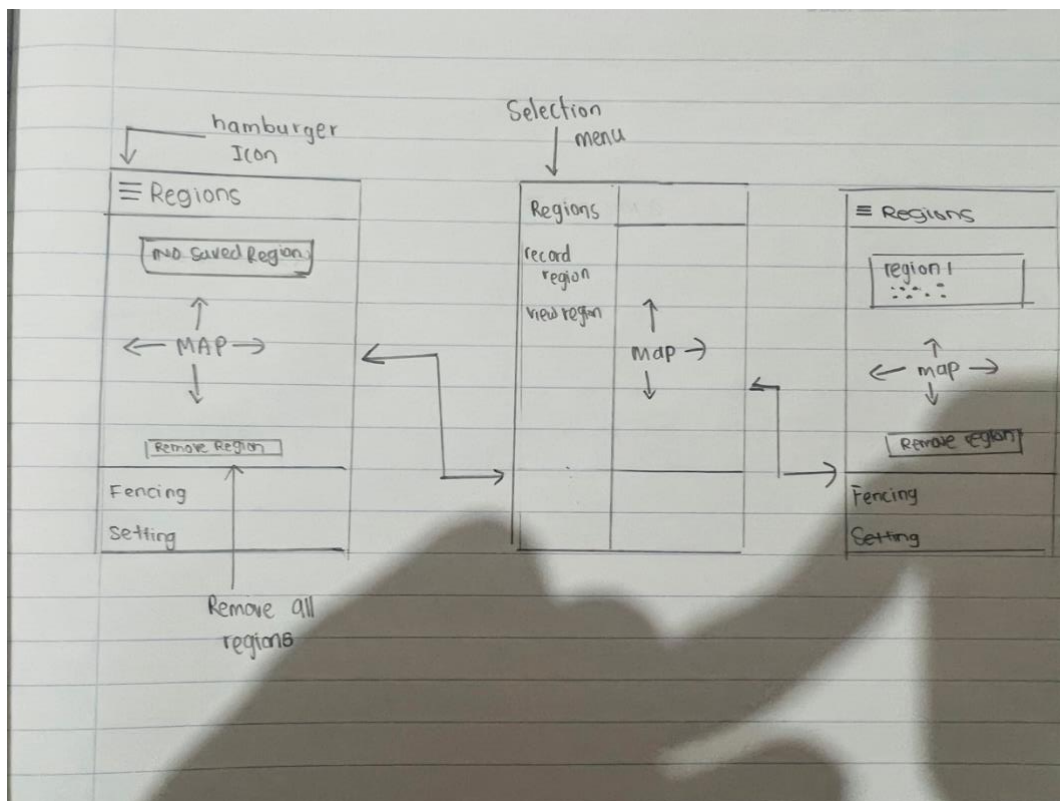 hamburger
Icon
≡ Regions
No Saved Region
MAP
Remove Region
Fencing
Setting
Remove all
regions
Selection
menu
Regions
record
region
view region
map
≡ Regions
region 1
map
Remove region
Fencing
Setting